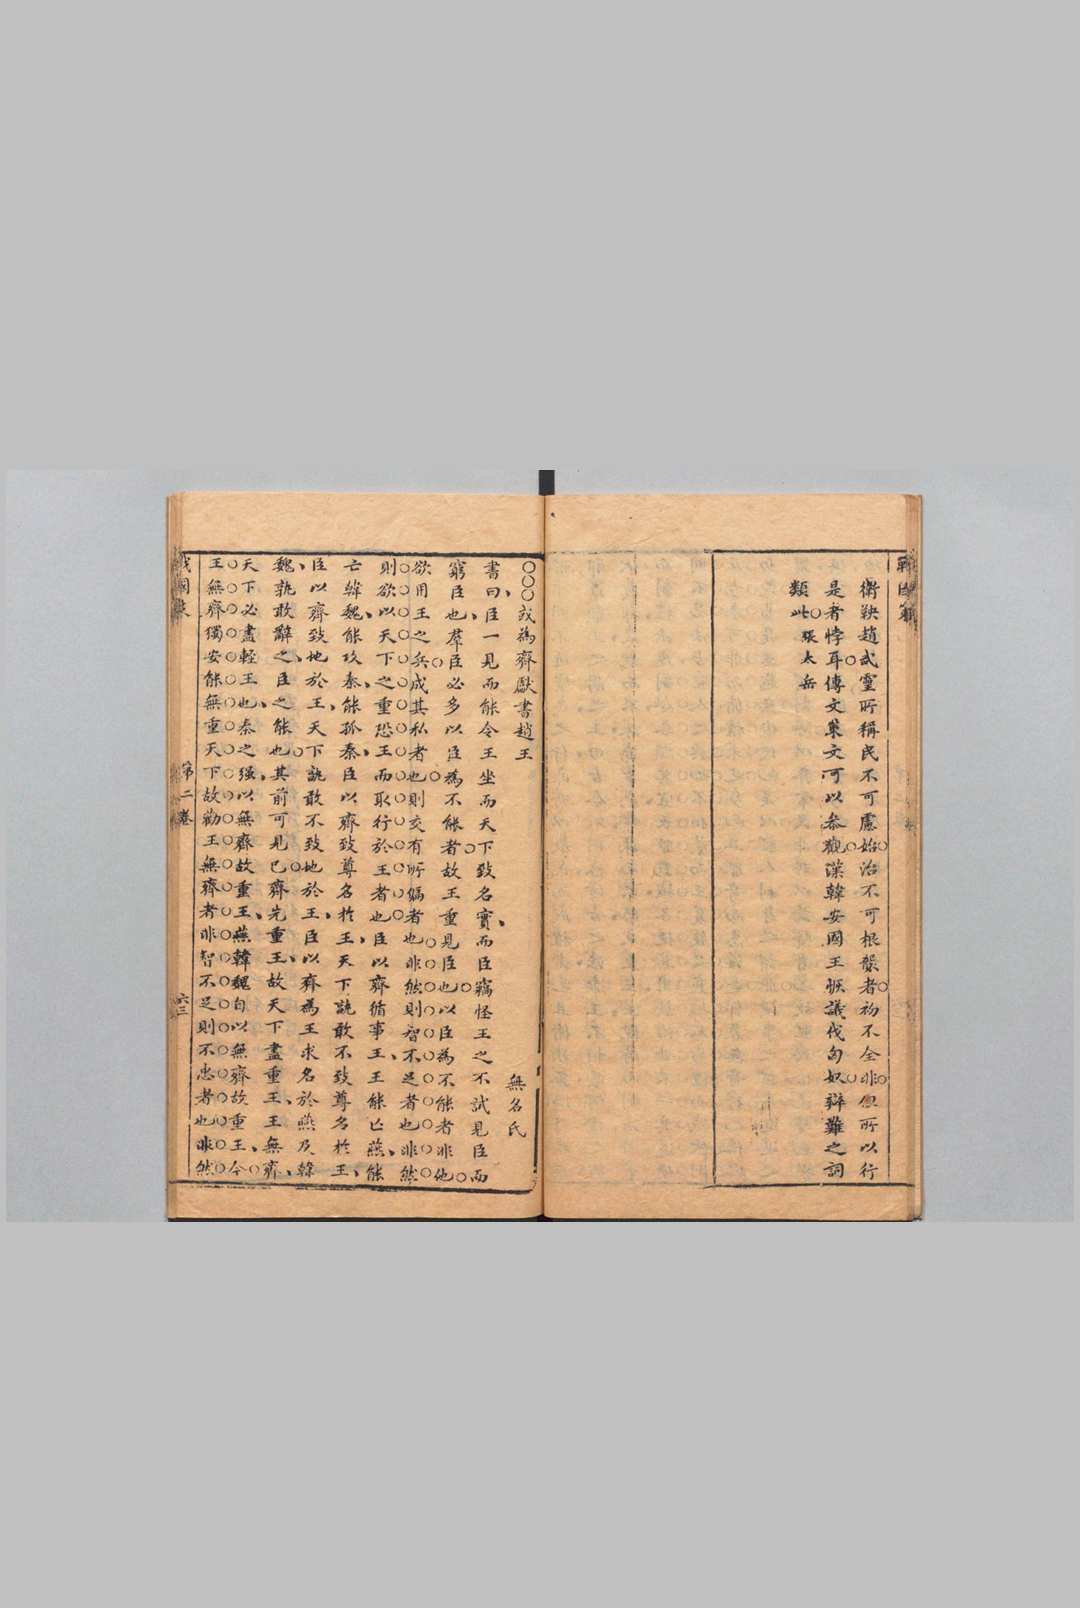 衛鞅趙武靈所稱民不可慮始治不可根襲者初不全非但所以行
是者悖耳傳文集文可以叅觀漢韓安國王恢議伐匈奴辯難之詞
類此 張太岳
或為齊獻書趙王
無名氏
書曰臣一見而能令王坐而天下致名實而臣竊怪王之不試見臣而
窮臣也羣臣必多以臣為不能者故王重見臣也以臣為不能者非他
欲用王之兵成其私者也則交有所偏者也非然則智不足者也非然
則欲以天下之重恐王而取行於王者也臣以齊循事王王能亡燕能
亡韓魏能攻秦能孤秦臣以齊致尊名於王天下孰敢不致尊名於王
臣以齊致地於王天下孰敢不致地於王臣以齊為王求名於燕及韓
魏孰敢辭之臣之能也其前可見已齊先重王故天下盡重王王無齊
天下必盡輕王也秦之强以無齊故重王燕韓魏自以無齊故重王今
王無齊獨安能無重天下故勸王無齊者非智不足則不忠者也非然
戰國策
第二卷
六三